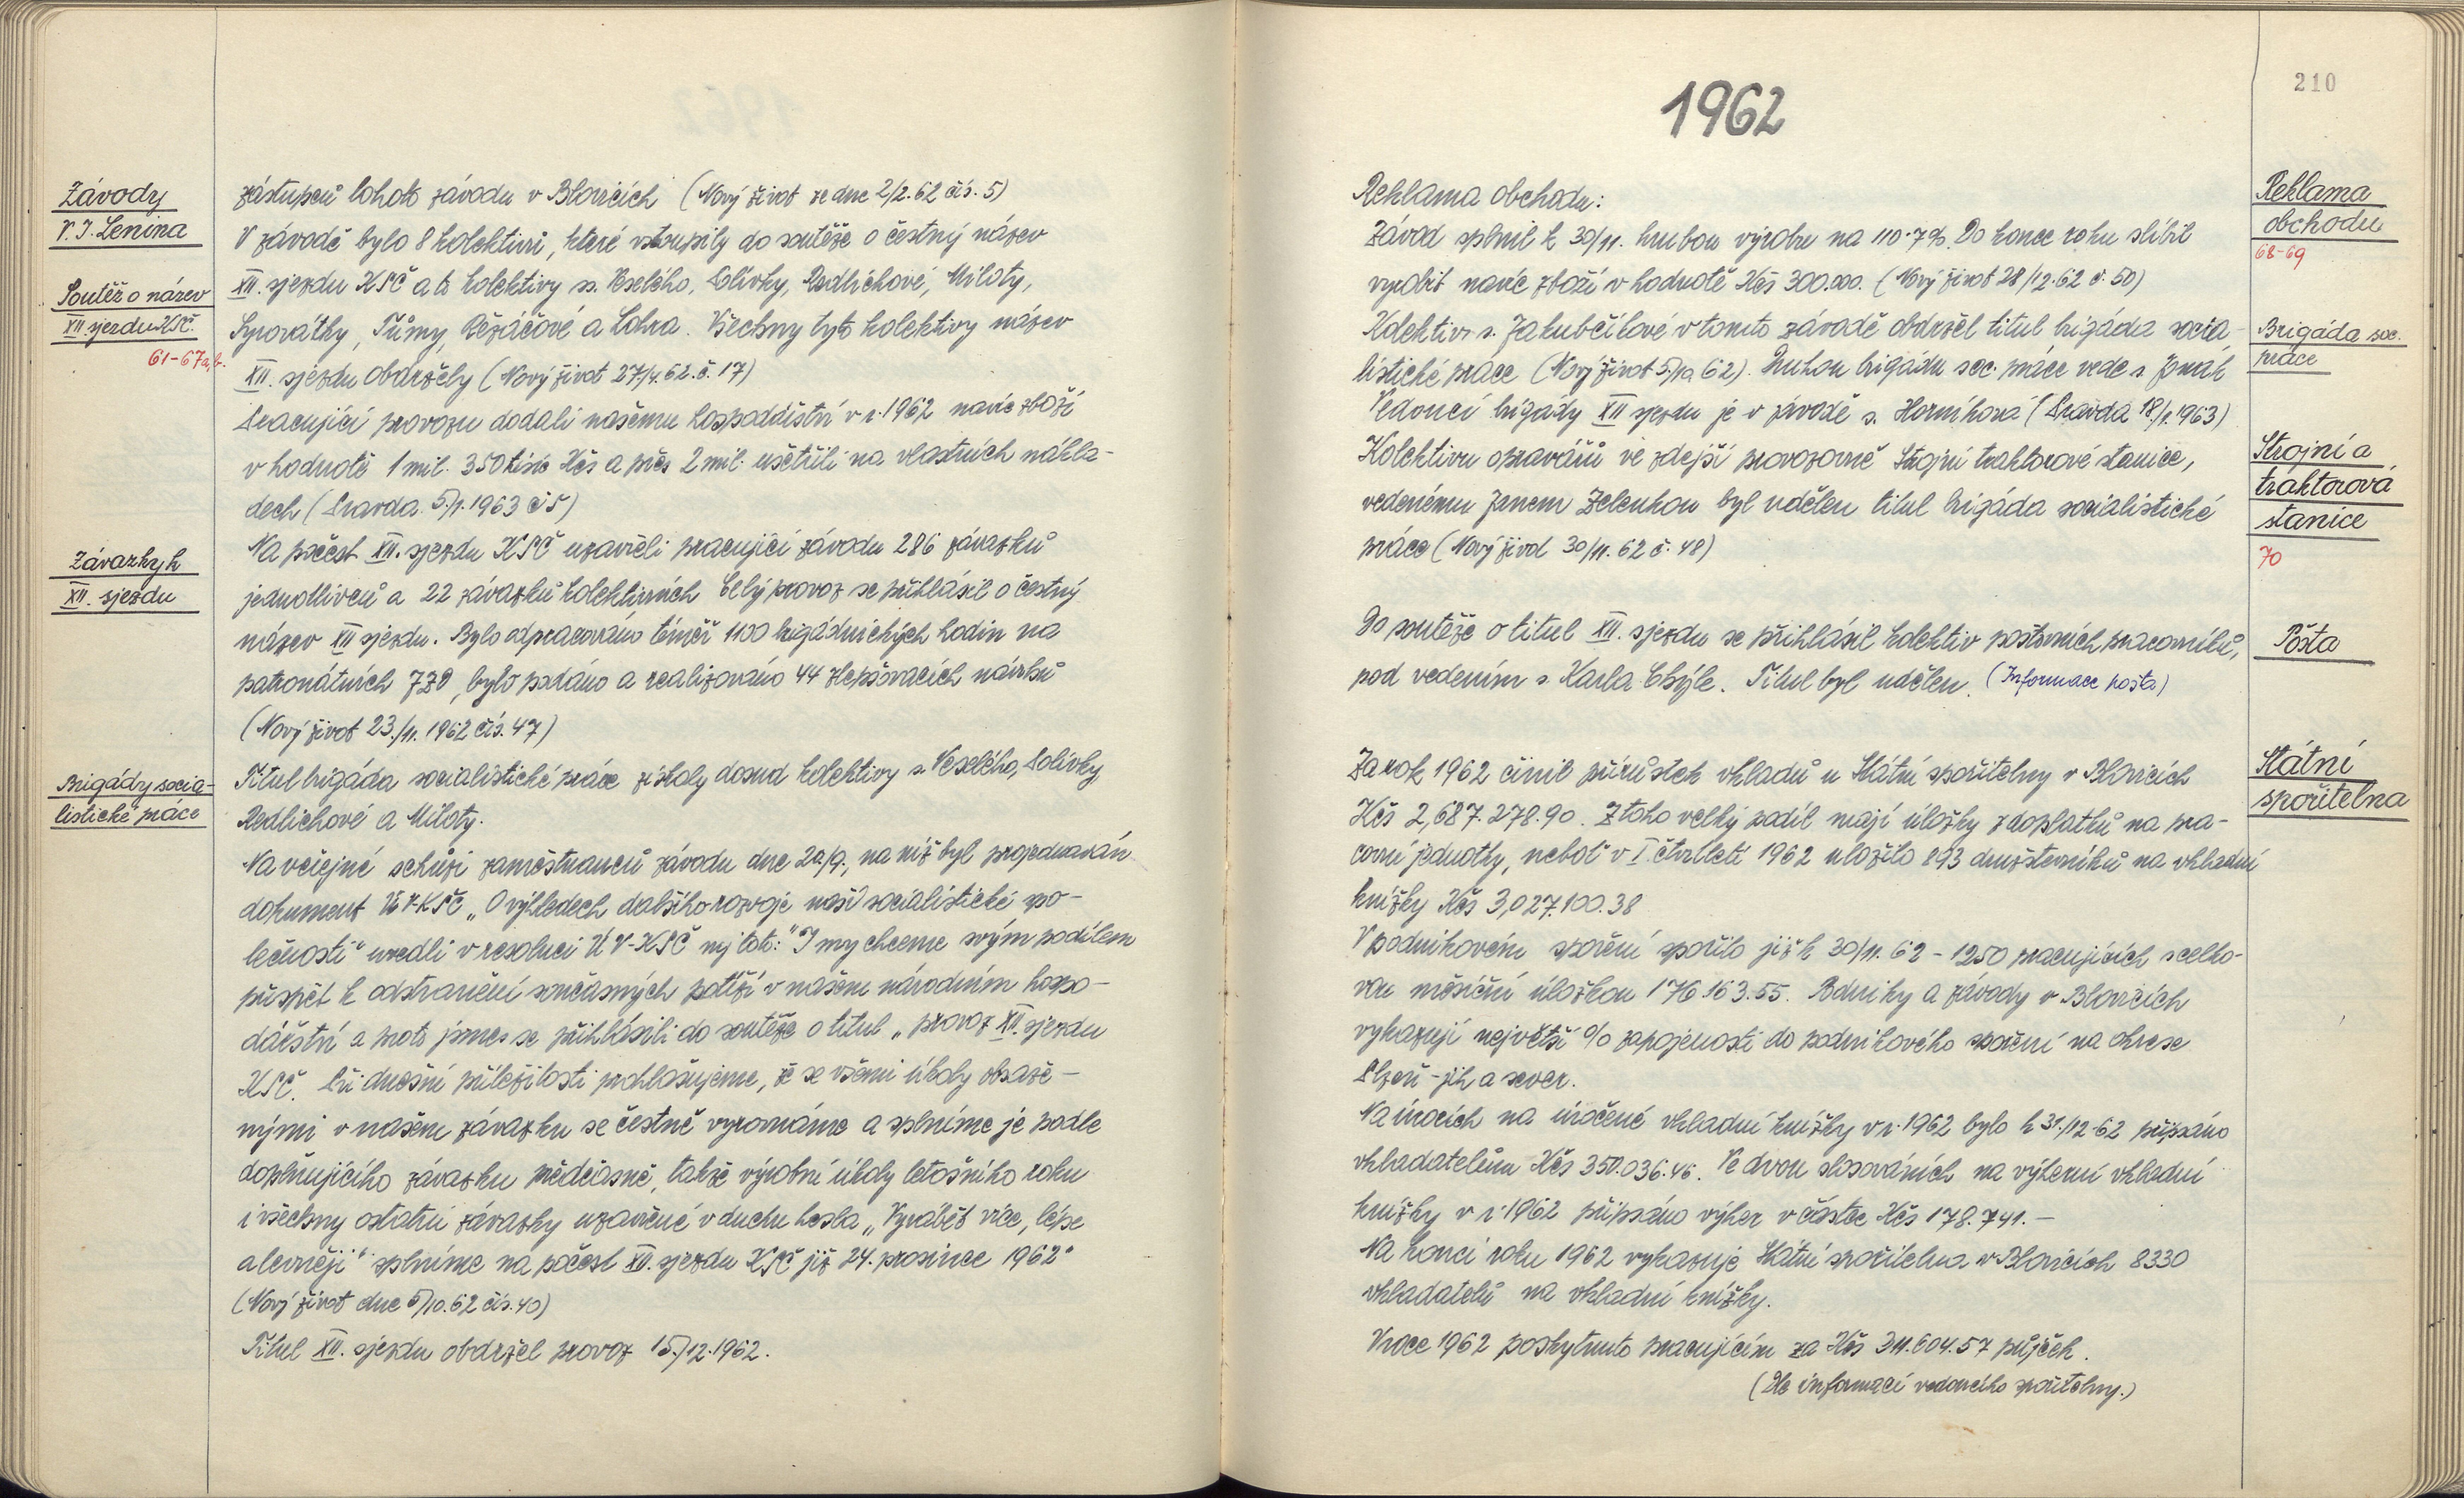 Závody
V. I. Lenina
zástupců tohoto závodu v Blovicích (Nový život ze dne 2/2.62 čís. 5)
V závodě bylo 8 kolektivů, které vstoupily do soutěže o čestný název
Soutěž o název
XII sjezdu KSČ.
61-67a,b.
XII. sjezdu KSČ a to kolektivy ss. Veselého, Solívky, Redlichové, Miloty,
Syrovátky, Tůmy, Řezáčové a Lohra. Všechny tyto kolektivy název
XII. sjezdu obdržely (Nový život 27./4.62. č. 17)
Pracující provozu dodali našemu hospodářství v r. 1962 navíc zboží
v hodnotě 1 mil. 350 tisíc Kčs a přes 2 mil. ušetřili na vlastních nákla-
dech (Pravda 5./1.1963 č 5)
Závazky k
XII. sjezdu
Na počest XII. sjezdu KSČ uzavřeli pracující závodu 286 závazků
jednotlivců a 22 závazků kolektivních Celý provoz se přihlásil o čestný
název XII sjezdu. Bylo odpracováno téměř 1100 brigádnických hodin na
patronátních JZD, bylo podáno a realizováno 44 zlepšovacích návrhů
(Nový život 23./11. 1962 čís. 47)
Brigády socia-
listické práce
Titul brigáda socialistické práce získaly dosud kolektivy s. Veselého, Solívky
Redlichové a Miloty.
Na veřejné schůzi zaměstnanců závodu dne 20/9., na níž byl projednáván
dokument ÚV-KSČ „O výhledech dalšího rozvoje naší socialistické spo-
lečnosti" uvedli v resoluci ÚV-KSČ mj toto: "I my chceme svým podílem
přispět k odstranění současných potíží v našem národním hospo-
dářství a proto jsme se přihlásili do soutěže o titul „provoz XII. sjezdu
KSČ. Při dnešní příležitosti prohlašujeme, že se všemi úkoly obsaže-
nými v našem závazku se čestně vyrovnáme a splníme je podle
doplňujícího závazku předčasně, takže výrobní úkoly letošního roku
i všechny ostatní závazky uzavřené v duchu hesla „Vyrábět více, lépe
a levněji" splníme na počest XII. sjezdu KSČ již 24. prosince 1962"
(Nový život dne 5/10.62 čís. 40)
Titul XII. sjezdu obdržel provoz 15./12.1962.
210
1962
Reklama
obchodu
68-69
Reklama obchodu:
Závod splnil k 30/11. hrubou výrobu na 110.7%. Do konce roku slíbil
vyrobit navíc zboží v hodnotě Kčs 300.000. (Nový život 28/12.62 č. 50)
Brigáda soc.
práce
Kolektiv s. Jakubčíkové v tomto závodě obdržel titul brigáda socia-
listické práce (Nový život 5/10 62). Druhou brigádu soc. práce vede s. Jonák
Vedoucí brigády XII sjezdu je v závodě s. Horníková (Pravda 18/1.1963)
Strojní a
traktorová
stanice
70
Kolektivu opravářů ve zdejší provozovně Strojní traktorové stanice,
vedenému Janem Zelenkou byl udělen titul brigáda socialistické
práce (Nový život 30/11.62 č. 48)
Pošta
Do soutěže o titul XII. sjezdu se přihlásil kolektiv poštovních pracovníků,
pod vedením s. Karla Chýle. Titul byl udělen. (Informace pošta)
Státní
spořitelna
Za rok 1962 činil přírůstek vkladů u Státní spořitelny v Blovicích
Kčs 2,687.278.90. Z toho velký podíl mají úložky z doplatků na pra-
covní jednotky, neboť v I. čtvrtletí 1962 uložilo 893 družstevníků na vkladní
knížky Kčs 3,027.100.38
V podnikovém spoření spořilo již k 30/11.62 - 1250 pracujících s celko-
vou měsíční úložkou 176.163.55. Podniky a závody v Blovicích
vykazují největší % zapojenosti do podnikového spoření na okrese
Plzeň - jih a sever.
Na úrocích na úročené vkladní knížky v r. 1962 bylo k 31./12.62 připsáno
vkladatelům Kčs 350.036.46. Ve dvou slosováních na výherní vkladní
knížky v r. 1962 připsáno výher v částce Kčs 178.741.-
Na konci roku 1962 vykazuje Státní spořitelna v Blovicích 8330
vkladatelů na vkladní knížky.
V roce 1962 poskytnuto pracujícím za Kčs 311.604.57 půjček.
(Dle informací vedoucího spořitelny.)